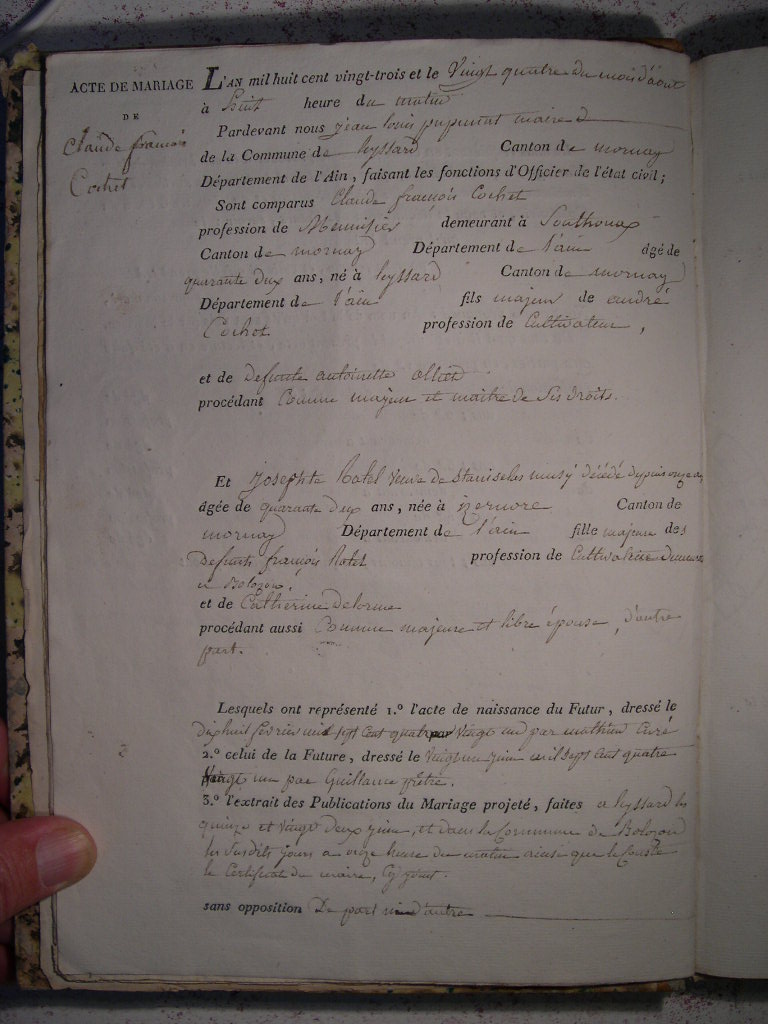 ACTE DE MARIAGE
DE
Claude françois
Cochet
L'AN mil huit cent vingt-trois et le Vingt quatre du mois d'aout
à huit heure du matin
Pardevant nous jean louis maire d
de la Commune de leyssard Canton de mornay
Département de l'Ain, faisant les fonctions d'Officier de l'état civil;
Sont comparus Claude françois Cochet
profession de Menuisier demeurant à Southonax
Canton de mornay Département de l'ain âgé de
quarante deux ans, né à leyssard Canton de mornay
Département de l'ain fils majeur de andré
Cochet profession de Cultivateur,
et de Defunte antoinette
procédant Comme majeur et maitre de ses droits.
Et Josephte Rotel veuve de Stanislas musy décédé depuis onze ans
âgée de quarante deux ans, née à izernore Canton de
mornay Département de l'ain fille majeure des
Defunts françois Rotel profession de Cultivatrice demeurant
a Bolozon.
et de Catherine Delorme
procédant aussi Comme majeure et libre épouse, d'autre
part.
Lesquels ont représenté 1.º l'acte de naissance du Futur, dressé le
dixhuit fevrier mil sept cent quatre vingt un par mathieu Curé
2.º celui de la Future, dressé le vingt un juin mil sept cent quatre
vingt un par Guillaume prêtre.
3.º l'extrait des Publications du Mariage projeté, faites a leyssard les
quinze et vingt deux juin, et dans la Commune de Bolozon
les susdits jours a onze heure du matin ainsi que le Conste
le Certificat du maire, Cy joint.
sans opposition De part ni d'autre